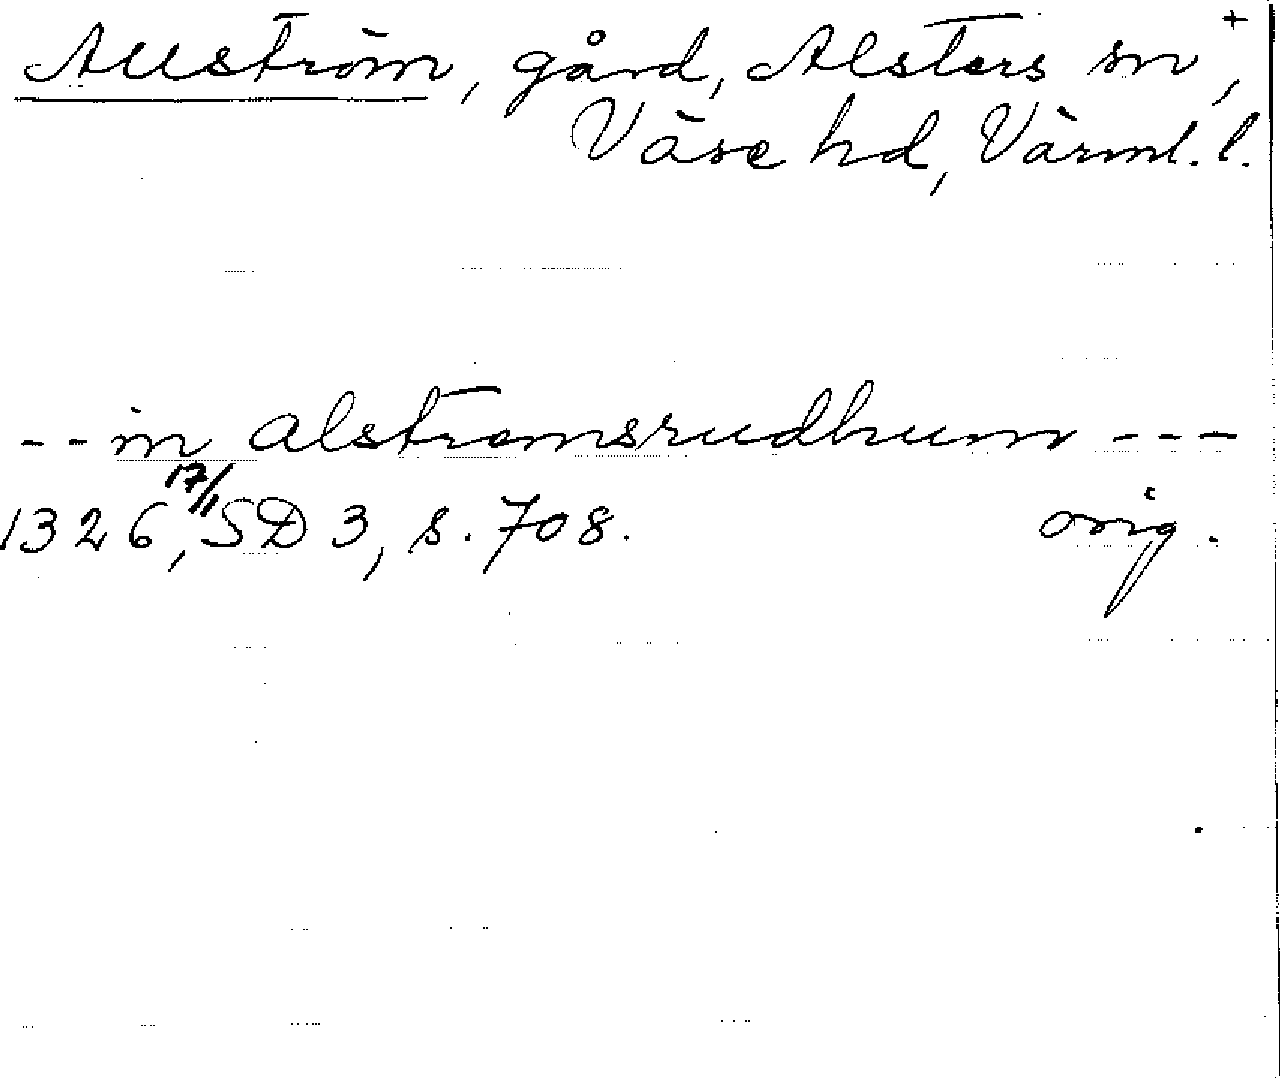 Allström, gård, Alsters sn, +
Väse hd, Värml. l.
-- in alstromsrudhum ---
1326 17/1, SD 3, s. 708. orig.